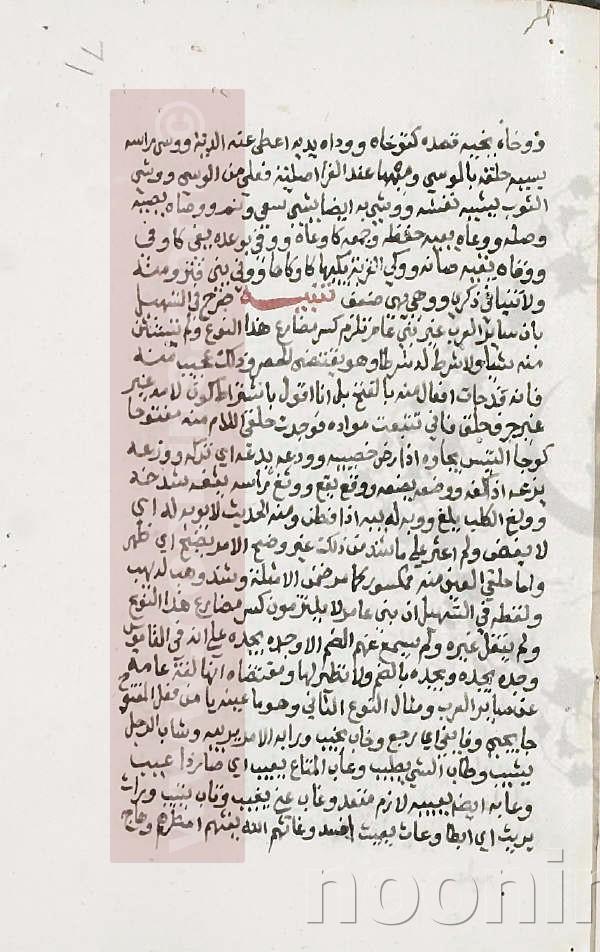 ووخاه يخيه قصده كتوخاه ووداه يديه اعطى عنه الدية ووسى راسه
يسيه حلقه بالموسي عند الفرا اصلية فعلى من الوسي ووشى
الثوب يشيه نقشه ووشى به ايضا يشي سعى ونم ووصاه يصيه
وصله ووعاه يعيه حفظه وجمعه كاوعاه ووفى بوعده يفي كاوفى
ووقاه يقيه صانه ووكي القربة يكيها كاوكاها ووني يني فتر ومنه
ولا تنيا في ذكري ووهى يهي ضعف تنبيه صرح في التسهيل
بان ساير العرب غير بني عامر تلزم كسر مضارع هذا النوع ولم يستثن
منه شيا ولا شرط له شرطا وهو يقتضي الحصر وذلك عجيب منه
فانه قد جات افعال منه بالفتح بل انا اقول باشتراط كون لامه غير
حرف حلق فاني تتبعت مواده فوجدت حلقي اللام منه مفتوحا
كوجا التيس يجاوه اذا رض خصييه وودعه يدعه اي تركه ووزعه
يزعه اذا كفه ووضعه يضعه ووقع يقع ووثغ راسه يثغه شدخه
وولغ الكلب يلغ ووبه له يبه اذا فطن ومنه الحديث لا يوبه له اي
لا يفطن ولم اعثر على ما شذ من ذلك غير وضح الامر يضح اي ظهر
واما حلقي العين منه فمكسور كما مر ضمن الامثلة وشذ وهب له يهب
ولفظه في التسهيل ان بني عامر لا يلتزمون كسر مضارع هذا النوع
ولم ينقل غيره ولم يسمع عنهم الضم الا وجده يجده على انه في القاموس
وجده يجده ويجده بالضم ولا نظير لها ومقتضاه انها لغة عامة
عن ساير العرب ومثال النوع الثاني وهو ما عينه يا من فعل المفتوح
جا يجيء وفا يفي اي رجع وخاب يخيب ورابه الامر يريبه وشاب الرجل
يشيب وطاب الشي يطيب وعاب المتاع يعيب اي صار ذا عيب
وعابه ايضا يعيبه لازم متعد وغاب عني يغيب وناب ينيب وراث
يريث اي ابطا وعاث يعيث افسد وغاثهم الله يغيثهم امطرهم وهاج